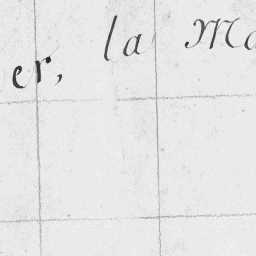 er, la Ma